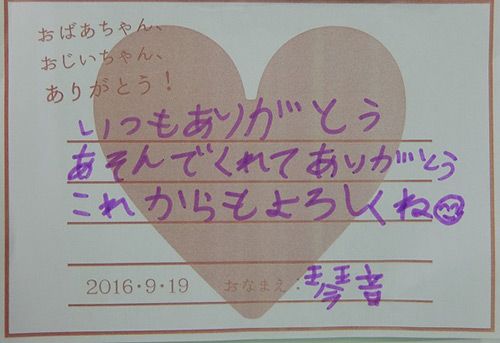 おばあちゃん、
おじいちゃん、
ありがとう！
いつもありがとう
あそんでくれてありがとう
これからもよろしくね😊
2016・9・19 おなまえ：琴音